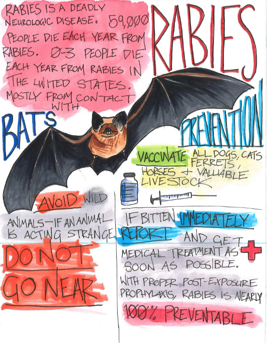 RABIES IS A DEADLY
NEUROLOGIC DISEASE. 59,000
PEOPLE DIE EACH YEAR FROM
RABIES. 0-3 PEOPLE DIE
EACH YEAR FROM RABIES IN
THE UNITED STATES.
MOSTLY FROM CONTACT
WITH
BATS
RABIES
PREVENTION
VACCINATE ALL DOGS, CATS
FERRETS,
HORSES + VALUABLE
LIVESTOCK
AVOID WILD
ANIMALS-IF AN ANIMAL
IS ACTING STRANGE
DO NOT
GO NEAR
IF BITTEN IMMEDIATELY
REPORT AND GET
MEDICAL TREATMENT AS
SOON AS POSSIBLE.
WITH PROPER POST-EXPOSURE
PROPHYLAXIS, RABIES IS NEARLY
100% PREVENTABLE